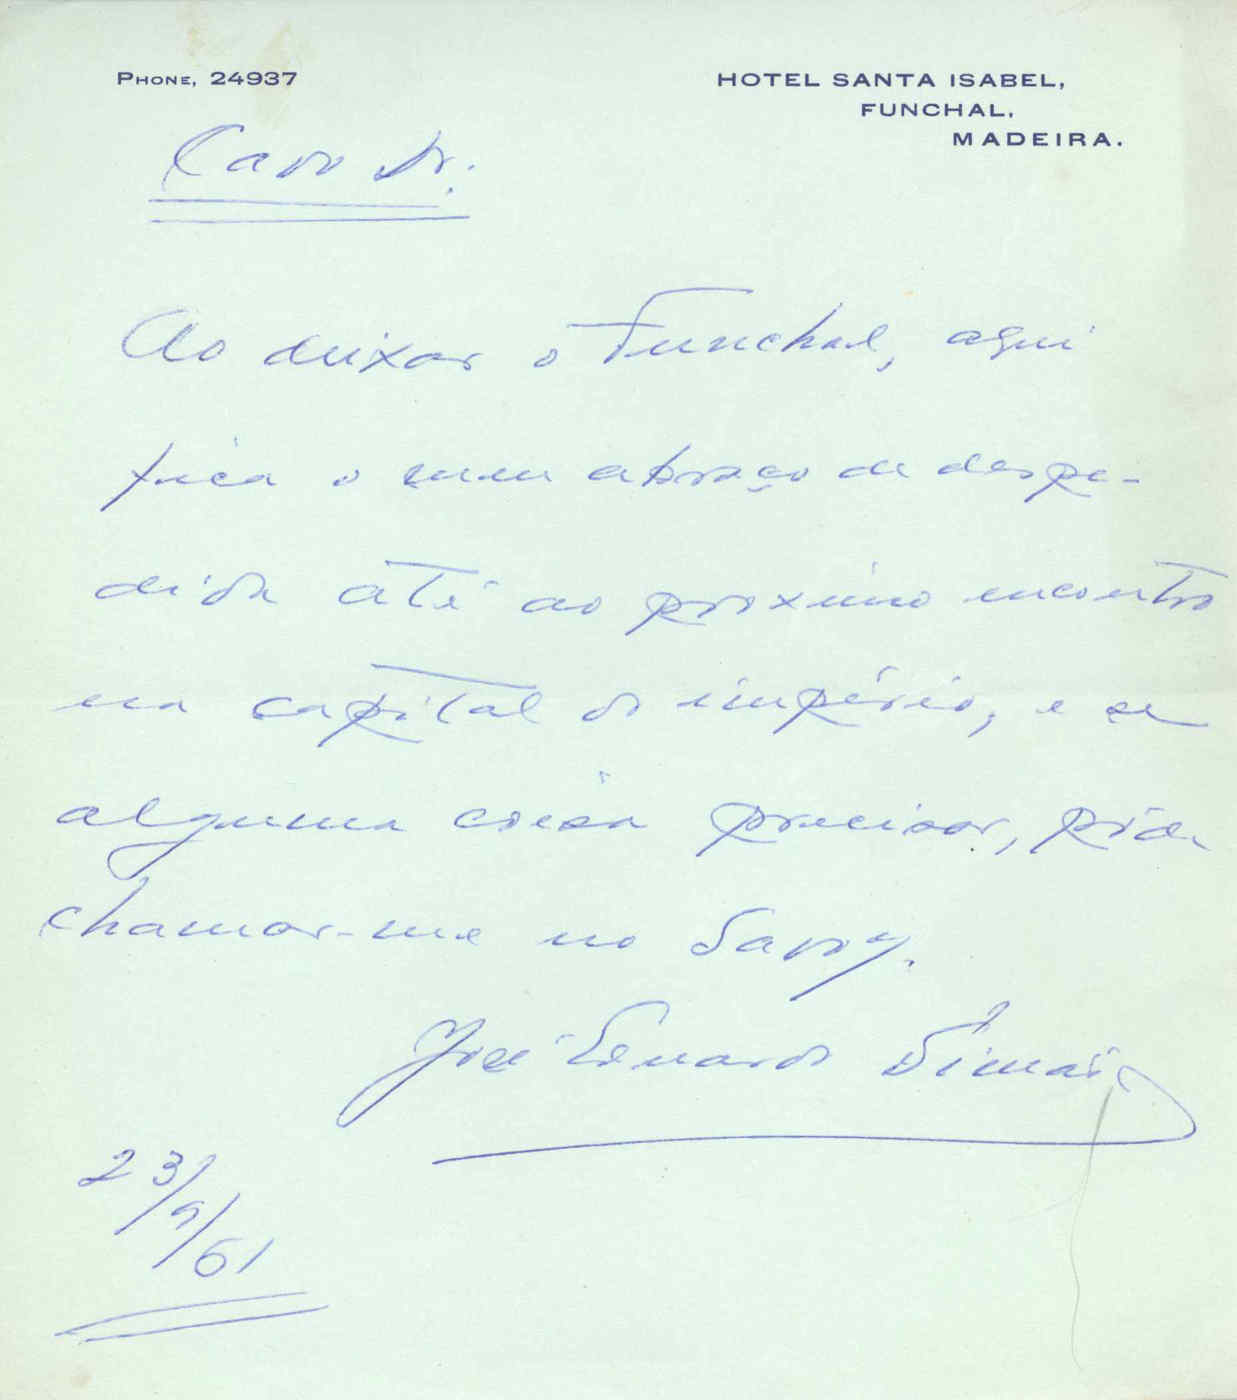 PHONE, 24937
HOTEL SANTA ISABEL,
FUNCHAL,
MADEIRA.
Caro Dr.
Ao deixar o Funchal, aqui
fica o meu abraço de despe-
dida até ao proximo encontro
na capital do império, e se
alguma coisa precisar, pode
chamar-me no Savoy.
José Eduardo Simão
23/9/61